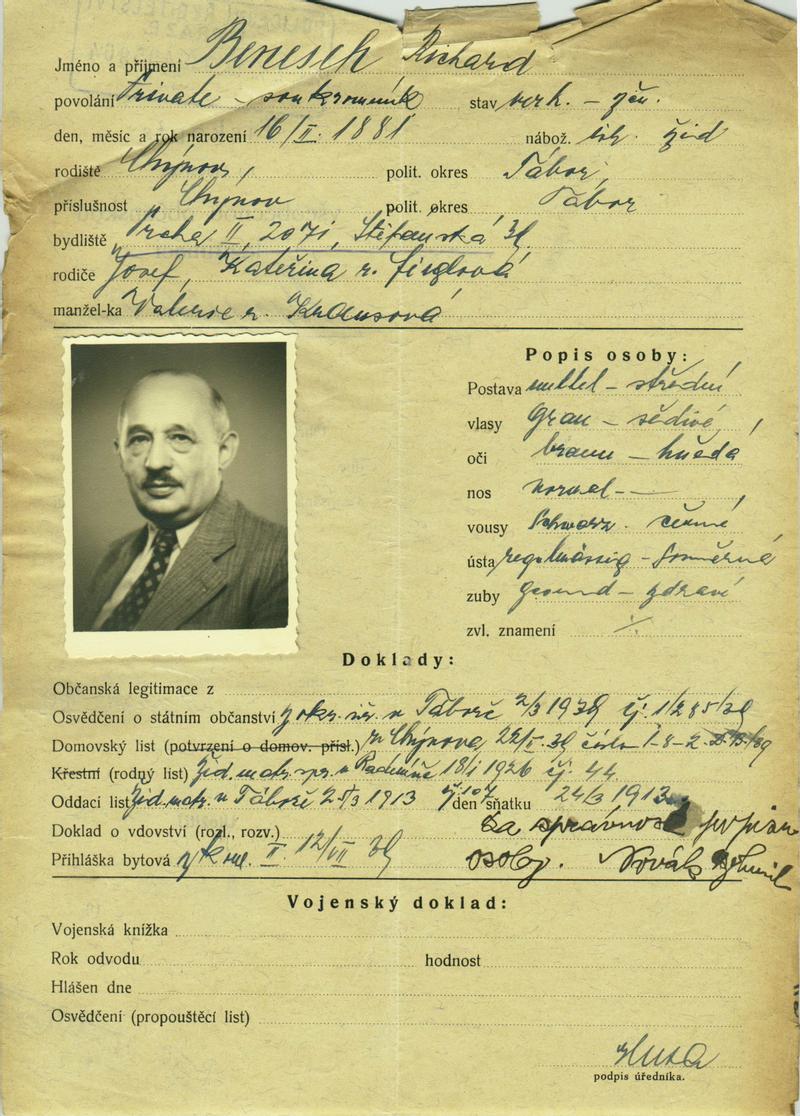 Jméno a příjmení Benesch Richard
povolání Private - soukromník stav verh. - žen.
den, měsíc a rok narození 16/II. 1881 nábož. žid
rodiště Chýnov, polit. okres Tábor,
příslušnost Chýnov polit. okres Tábor
bydliště Praha II, 2071, Štěpánská 39.
rodiče Josef, Kateřina r.
manžel-ka Valerie r. Krausová
Popis osoby:
Postava mittel - střední
vlasy grau - šedivé,
oči braun - hnědá
nos normal -
vousy schwarz - černé
ústa regelmässig - souměrná
zuby gesund - zdraví
zvl. znamení ./.
Doklady:
Občanská legitimace z
Osvědčení o státním občanství z okr. úř. v Táboře 2/3 1939 čj. 1/285/39
Domovský list (potvrzení o domov. přísl.) z Chýnova, 22/V. 39 číslo
Křestní (rodný list) žid. matr. spr. v 18/I 1926 čj. 44
Oddací list žid. matr. v Táboře 1913 čj 107 den sňatku 24/3 1913
Doklad o vdovství (rozl., rozv.) Za správnost popisu
Přihláška bytová z kom. II. 12/VII 39 osoby. Novák
Vojenský doklad:
Vojenská knížka
Rok odvodu hodnost
Hlášen dne
Osvědčení (propouštěcí list)
podpis úředníka.